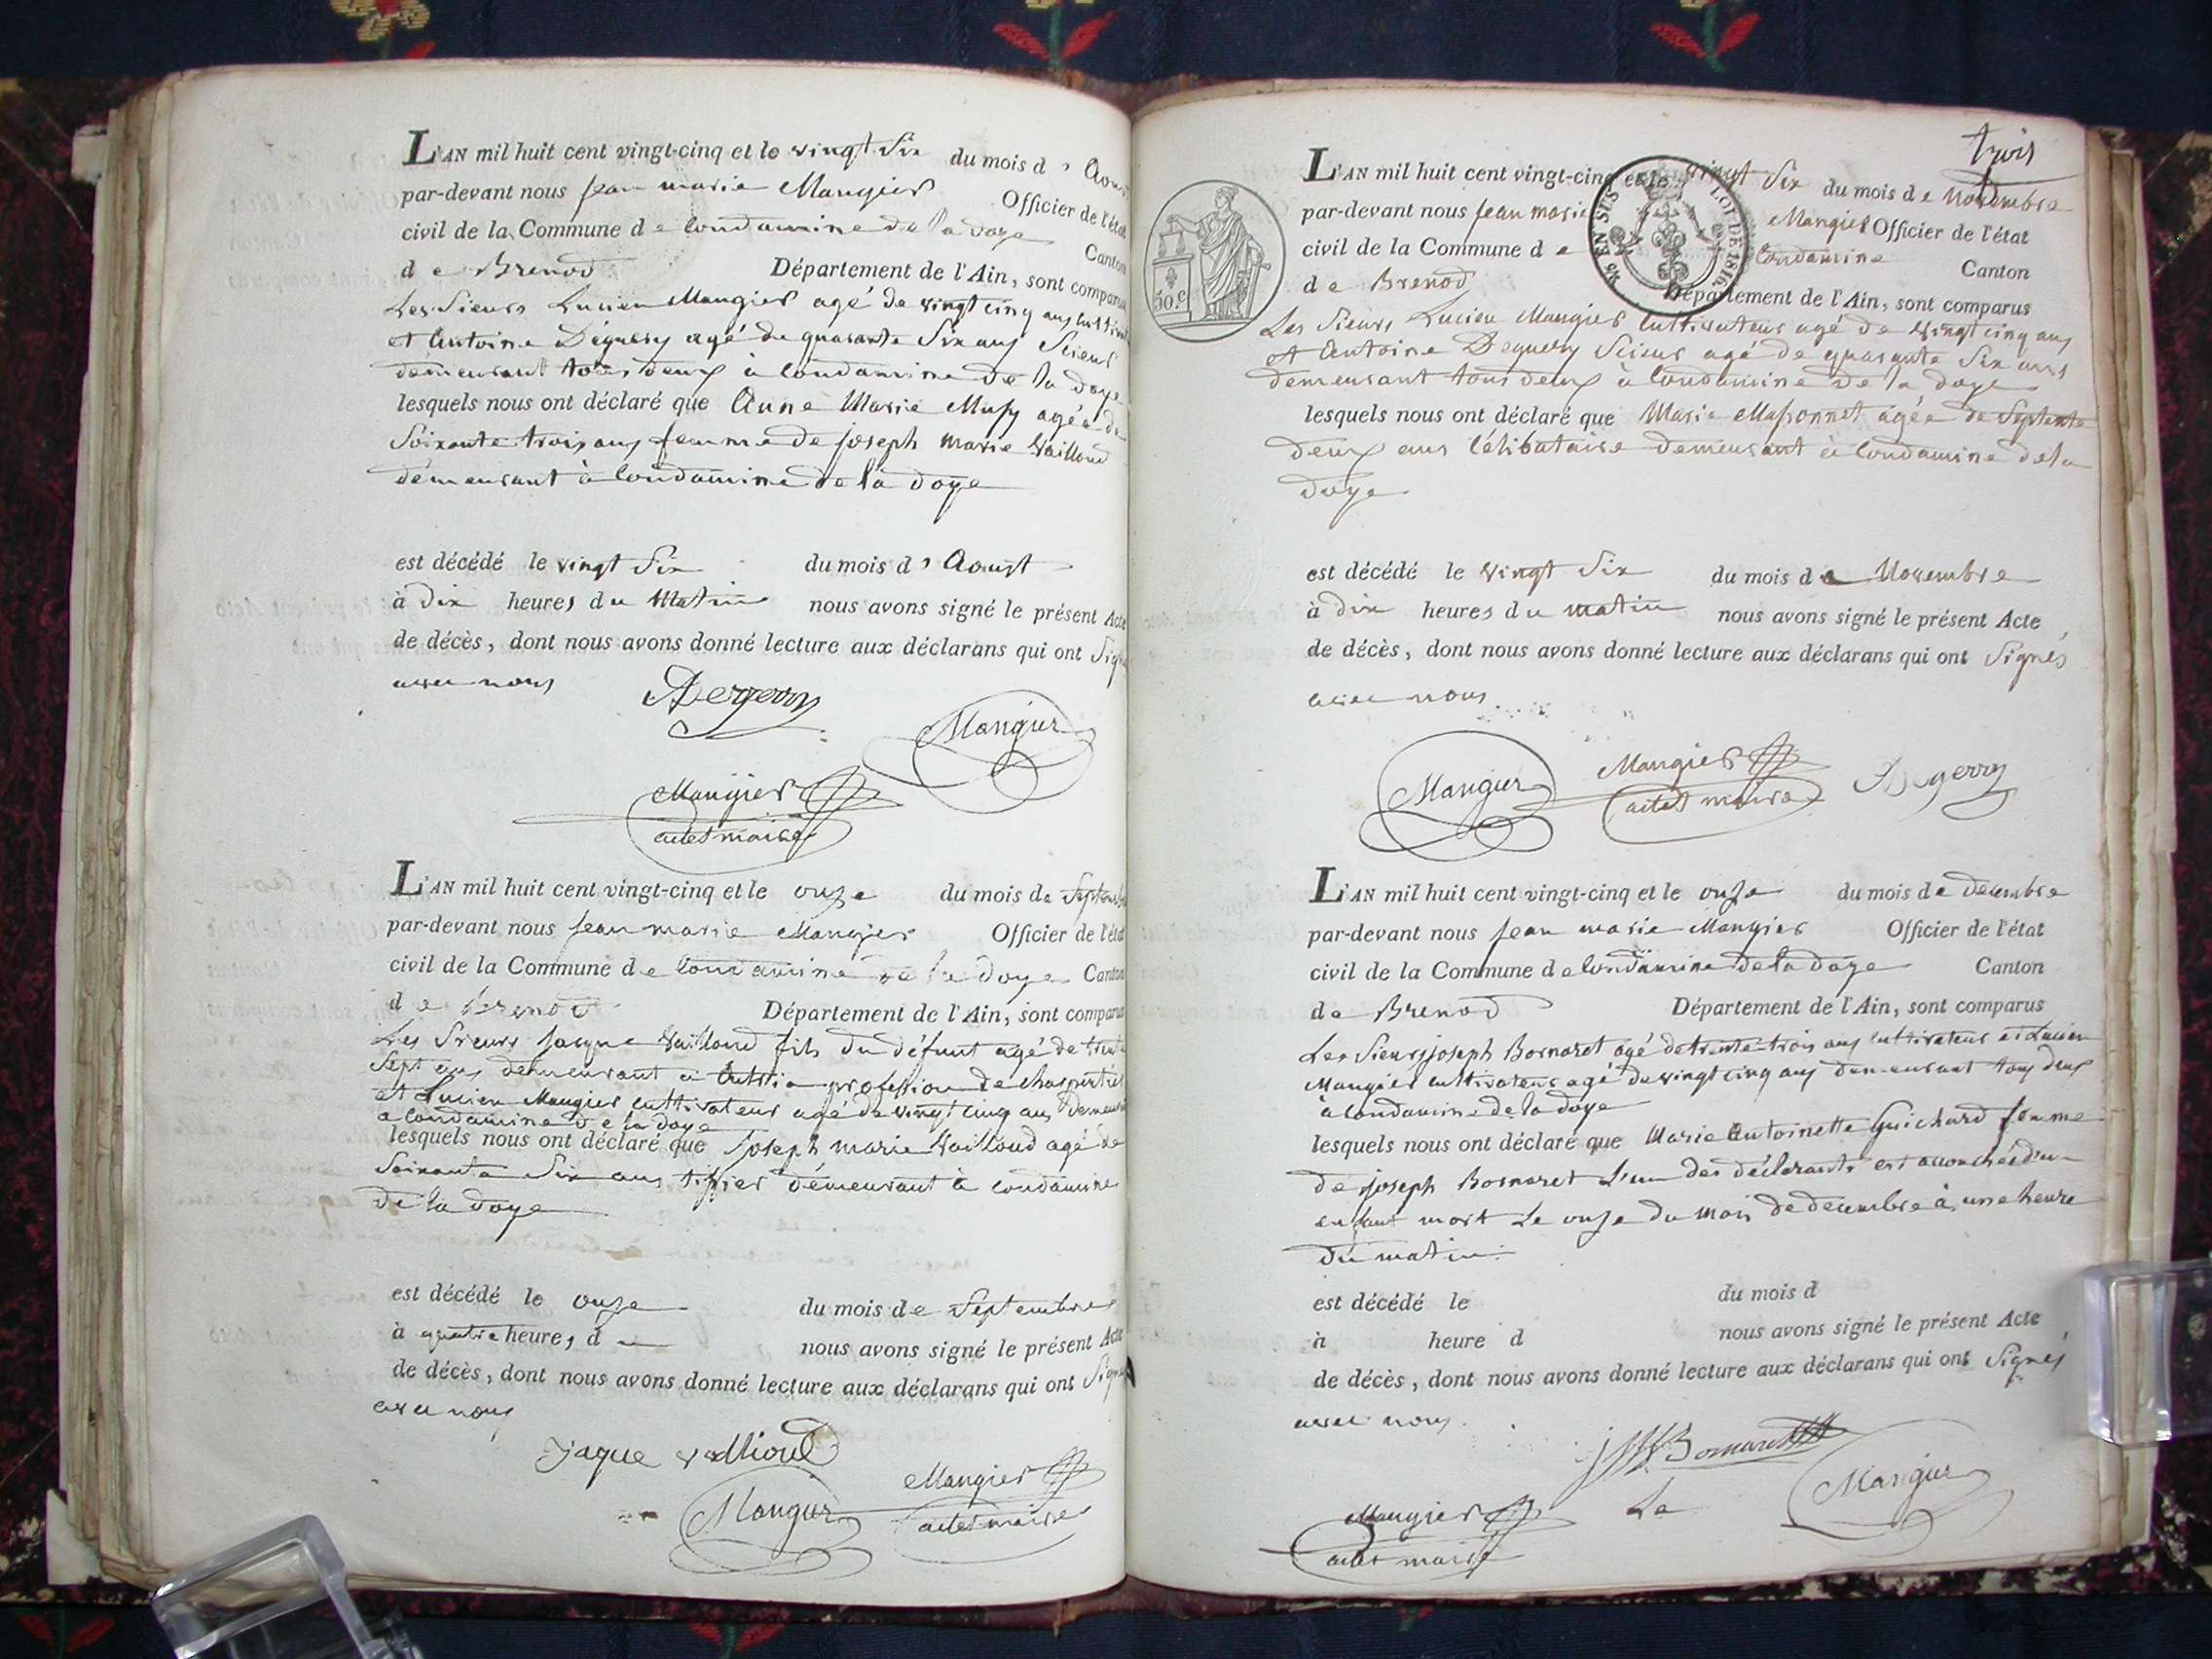 L'AN mil huit cent vingt-cinq et le vingt Six du mois d'Aoust
par-devant nous jean marie Mangier Officier de l'état
civil de la Commune de Condamine de la doye Canton
de Brenod Département de l'Ain, sont comparus
Les Sieurs Lucien Mangier agé de vingt cinq ans
et Antoine Déguery agé de quarante Six ans Scieur
demeurant tous deux à Condamine de la doye
lesquels nous ont déclaré que Anne Marie Musy agée de
Soixante trois ans femme de joseph marie Vailloud
demeurant à Condamine de la doye
est décédé le vingt Six du mois d'Aoust
à dix heures du Matin nous avons signé le présent Acte
de décès, dont nous avons donné lecture aux déclarans qui ont Signé
avec nous
Degerry
Mangier
Mangier
adet maire
L'AN mil huit cent vingt-cinq et le onze du mois de Septembre
par-devant nous jean marie Mangier Officier de l'état
civil de la Commune de Condamine de la doye Canton
de Brenod Département de l'Ain, sont comparus
Les Sieurs Jacque Vailloud fils du défunt agé de trente
Sept ans demeurant à profession de charpentier
et Lucien Mangier cultivateur agé de vingt cinq ans demeurant
a Condamine de la doye
lesquels nous ont déclaré que joseph marie Vailloud agé de
Soixante Six ans tissier demeurant à Condamine
de la doye
est décédé le onze du mois de Septembre
à quatre heures d nous avons signé le présent Acte
de décès, dont nous avons donné lecture aux déclarans qui ont Signé
avec nous
jaque vallioud
Mangier
Mangier
adet maire
trois
EN SUS LOI DE 1816
50.c
L'AN mil huit cent vingt-cinq et le vingt Six du mois de Novembre
par-devant nous jean marie Mangier Officier de l'état
civil de la Commune de Condamine Canton
de Brenod Département de l'Ain, sont comparus
Les Sieurs Lucien Mangier Cultivateur agé de vingt cinq ans
et Antoine Deguery Scieur agé de quarante Six ans
demeurant tous deux à Condamine de la doye
lesquels nous ont déclaré que Marie Massonnet agée de Septente
deux ans Célibataire demeurant à Condamine de la
doye
est décédé le vingt Six du mois de Novembre
à dix heures du matin nous avons signé le présent Acte
de décès, dont nous avons donné lecture aux déclarans qui ont Signés
avec nous
Mangier
Mangier
adet maire
Degerry
L'AN mil huit cent vingt-cinq et le onze du mois de decembre
par-devant nous jean marie Mangier Officier de l'état
civil de la Commune de Condamine de la doye Canton
de Brenod Département de l'Ain, sont comparus
Les Sieurs joseph Bornaret agé de trente-trois ans cultivateur et Lucien
Mangier cultivateur agé de vingt cinq ans demeurant tous deux
à Condamine de la doye
lesquels nous ont déclaré que Marie Antoinette Guichard femme
de joseph Bornaret L'un des déclarants est accouchée d'un
enfant mort Le onze du mois de decembre à une heure
du matin
est décédé le du mois d
à heure d nous avons signé le présent Acte
de décès, dont nous avons donné lecture aux déclarans qui ont Signés
avec nous
Bornaret
Mangier
Le
Mangier
adet maire